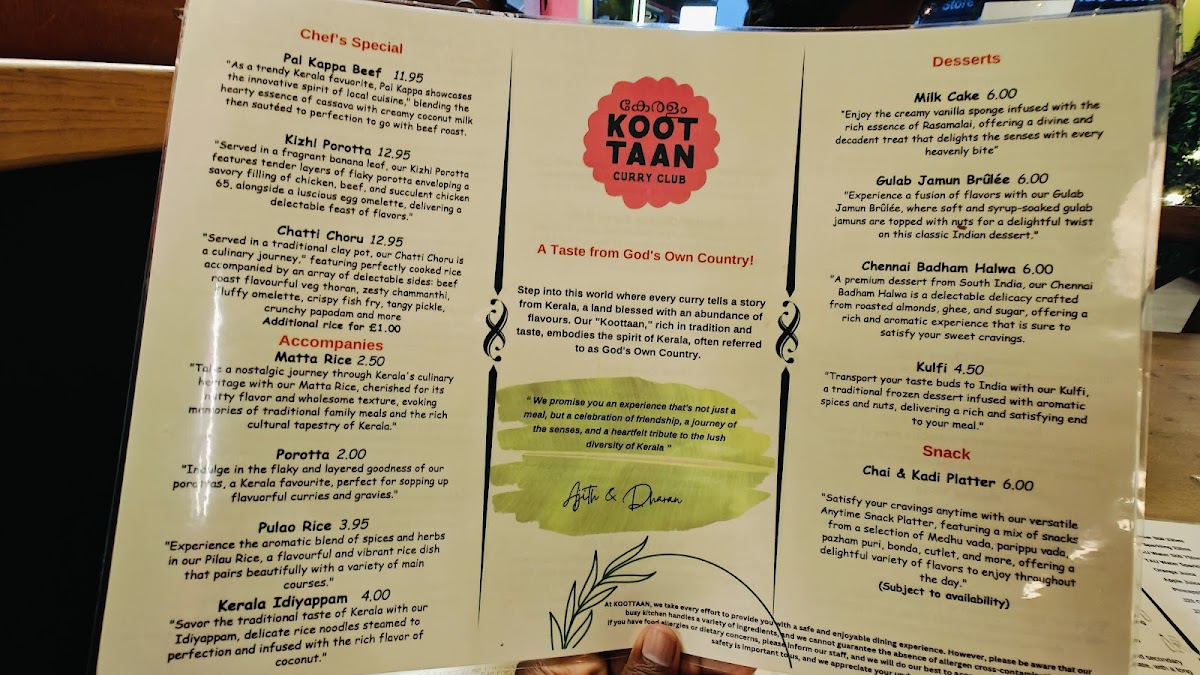 Chef's Special
Pal Kappa Beef 11.95
"As a trendy Kerala favuorite, Pal Kappa showcases
the innovative spirit of local cuisine," blending the
hearty essence of cassava with creamy coconut milk
then sautéed to perfection to go with beef roast.
Kizhi Porotta 12.95
"Served in a fragrant banana leaf, our Kizhi Porotta
features tender layers of flaky porotta enveloping a
savory filling of chicken, beef, and succulent chicken
65, alongside a luscious egg omelette, delivering a
delectable feast of flavors."
Chatti Choru 12.95
"Served in a traditional clay pot, our Chatti Choru is
a culinary journey," featuring perfectly cooked rice
accompanied by an array of delectable sides: beef
roast flavourful veg thoran, zesty chammanthi,
fluffy omelette, crispy fish fry, tangy pickle,
crunchy papadam and more
Additional rice for £1.00
Accompanies
Matta Rice 2.50
"Take a nostalgic journey through Kerala's culinary
heritage with our Matta Rice, cherished for its
nutty flavor and wholesome texture, evoking
memories of traditional family meals and the rich
cultural tapestry of Kerala."
Porotta 2.00
"Indulge in the flaky and layered goodness of our
porottas, a Kerala favourite, perfect for sopping up
flavuorful curries and gravies."
Pulao Rice 3.95
"Experience the aromatic blend of spices and herbs
in our Pilau Rice, a flavourful and vibrant rice dish
that pairs beautifully with a variety of main
courses."
Kerala Idiyappam 4.00
"Savor the traditional taste of Kerala with our
Idiyappam, delicate rice noodles steamed to
perfection and infused with the rich flavor of
coconut."
കേരളം
KOOT
TAAN
CURRY CLUB
A Taste from God's Own Country!
Step into this world where every curry tells a story
from Kerala, a land blessed with an abundance of
flavours. Our "Koottaan," rich in tradition and
taste, embodies the spirit of Kerala, often referred
to as God's Own Country.
" We promise you an experience that's not just a
meal, but a celebration of friendship, a journey of
the senses, and a heartfelt tribute to the lush
diversity of Kerala "
Ajith & Dharan
At KOOTTAAN, we take every effort to provide you with a safe and enjoyable dining experience. However, please be aware that our
busy kitchen handles a variety of ingredients, and we cannot guarantee the absence of allergen cross-contamination
If you have food allergies or dietary concerns, please inform our staff, and we will do our best to
safety is important to us, and we appreciate your
Desserts
Milk Cake 6.00
"Enjoy the creamy vanilla sponge infused with the
rich essence of Rasamalai, offering a divine and
decadent treat that delights the senses with every
heavenly bite"
Gulab Jamun Brûlée 6.00
"Experience a fusion of flavors with our Gulab
Jamun Brûlée, where soft and syrup-soaked gulab
jamuns are topped with nuts for a delightful twist
on this classic Indian dessert."
Chennai Badham Halwa 6.00
"A premium dessert from South India, our Chennai
Badham Halwa is a delectable delicacy crafted
from roasted almonds, ghee, and sugar, offering a
rich and aromatic experience that is sure to
satisfy your sweet cravings.
Kulfi 4.50
"Transport your taste buds to India with our Kulfi,
a traditional frozen dessert infused with aromatic
spices and nuts, delivering a rich and satisfying end
to your meal."
Snack
Chai & Kadi Platter 6.00
"Satisfy your cravings anytime with our versatile
Anytime Snack Platter, featuring a mix of snacks
from a selection of Medhu vada, parippu vada,
pazham puri, bonda, cutlet, and more, offering a
delightful variety of flavors to enjoy throughout
the day."
(Subject to availability)
Store